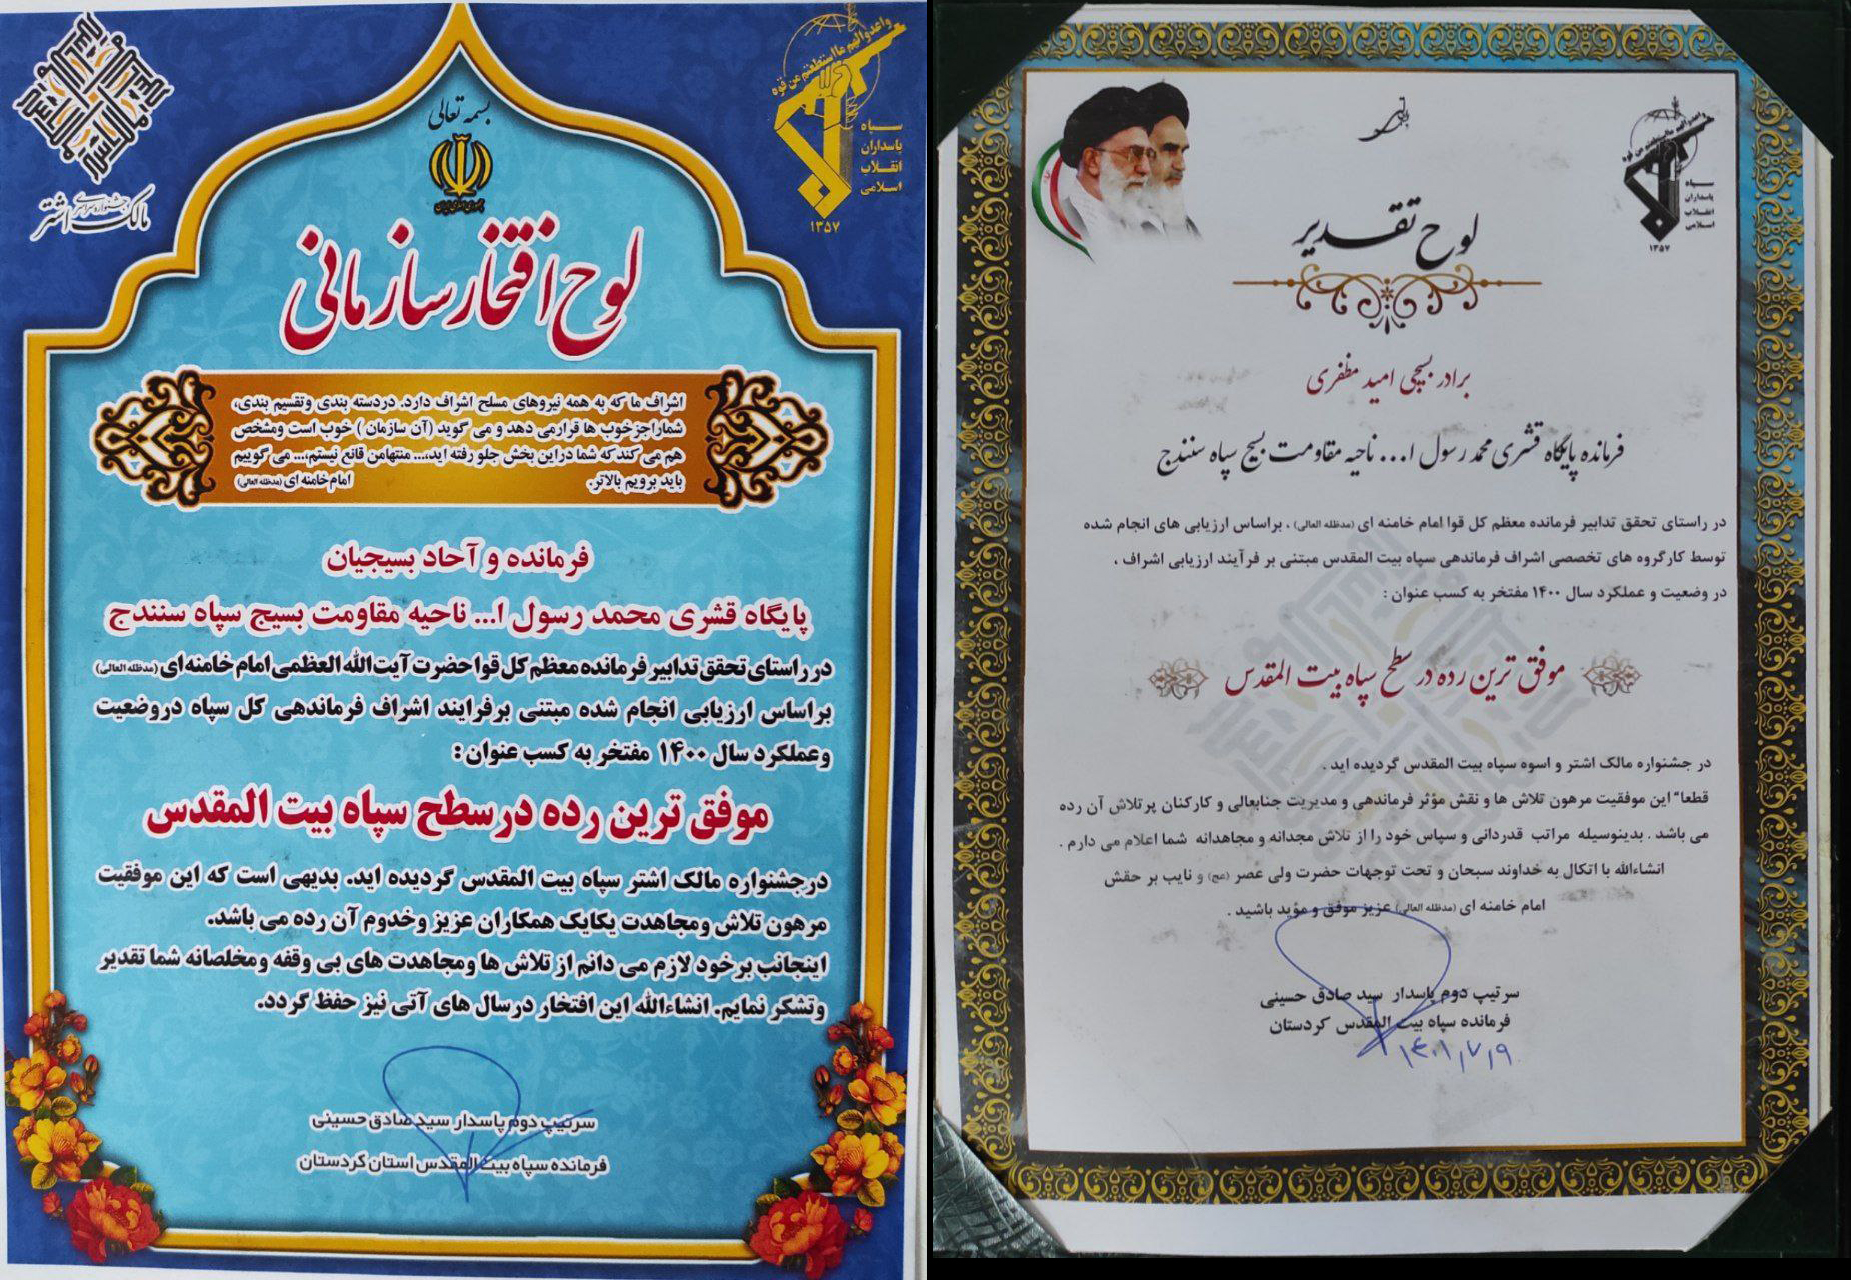 جشنواره سراسری
مالک اشتر
بسمه تعالی
واعدوا لهم ما استطعتم من قوه
سپاه
پاسداران
انقلاب
اسلامی
۱۳۵۷
جمهوری اسلامی ایران
لوح افتخار سازمانی
اشراف ما که به همه نیروهای مسلح اشراف دارد. دردسته بندی وتقسیم بندی،
شماراجزخوب ها قرارمی دهد و می گوید (آن سازمان ) خوب است ومشخص
هم می کند که شما دراین بخش جلو رفته اید.... منتهامن قانع نیستم،... می گوییم
باید برویم بالاتر. امام خامنه ای (مدظله العالی)
فرمانده و آحاد بسیجیان
پایگاه قشری محمد رسول ا... ناحیه مقاومت بسیج سپاه سنندج
در راستای تحقق تدابیر فرمانده معظم کل قوا حضرت آیت الله العظمی امام خامنه ای (مدظله العالی)
براساس ارزیابی انجام شده مبتنی برفرایند اشراف فرماندهی کل سپاه دروضعیت
وعملکرد سال ۱۴۰۰ مفتخر به کسب عنوان :
موفق ترین رده درسطح سپاه بیت المقدس
درجشنواره مالک اشتر سپاه بیت المقدس گردیده اید. بدیهی است که این موفقیت
مرهون تلاش ومجاهدت یکایک همکاران عزیز وخدوم آن رده می باشد.
اینجانب برخود لازم می دانم از تلاش ها ومجاهدت های بی وقفه ومخلصانه شما تقدیر
وتشکر نمایم. انشاءالله این افتخار درسال های آتی نیز حفظ گردد.
سرتیپ دوم پاسدار سید صادق حسینی
فرمانده سپاه بیت المقدس استان کردستان
واعدوا لهم ما استطعتم من قوه
سپاه
پاسداران
انقلاب
اسلامی
۱۳۵۷
لوح تقدیر
برادر بسیجی امید مظفری
فرمانده پایگاه قشری محمد رسول ا... ناحیه مقاومت بسیج سپاه سنندج
در راستای تحقق تدابیر فرمانده معظم کل قوا امام خامنه ای (مدظله العالی) ، براساس ارزیابی های انجام شده
توسط کارگروه های تخصصی اشراف فرماندهی سپاه بیت المقدس مبتنی بر فرآیند ارزیابی اشراف ،
در وضعیت و عملکرد سال ۱۴۰۰ مفتخر به کسب عنوان :
موفق ترین رده در سطح سپاه بیت المقدس
در جشنواره مالک اشتر و اسوه سپاه بیت المقدس گردیده اید .
قطعا" این موفقیت مرهون تلاش ها و نقش مؤثر فرماندهی و مدیریت جنابعالی و کارکنان پرتلاش آن رده
می باشد . بدینوسیله مراتب قدردانی و سپاس خود را از تلاش مجدانه و مجاهدانه شما اعلام می دارم .
انشاءالله با اتکال به خداوند سبحان و تحت توجهات حضرت ولی عصر (عج) و نایب بر حقش
امام خامنه ای (مدظله العالی) عزیز موفق و مؤید باشید .
سرتیپ دوم پاسدار سید صادق حسینی
فرمانده سپاه بیت المقدس کردستان
۱۴۰۱/۷/۹